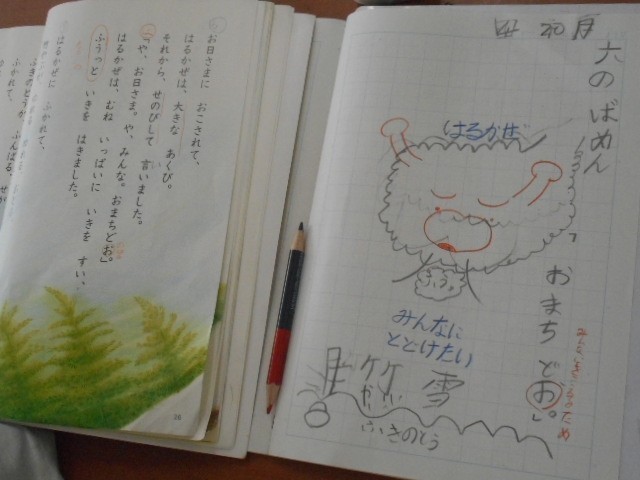 お日さまに おこされて、
はるかぜは、大きな あくび。
それから、せのびして 言いました。
「や、お日さま。や、みんな。おまちどお。」
はるかぜは、むね いっぱいに いきを すい、
ふうっと いきを はきました。
はるかぜに ふかれて、
ふきのとうが、ふんばる、せが
ふかれて、
六のばめん
「おまちどお」。
はるかぜ
ふう。
みんなに
とどけたい
竹
雪
ふきのとう